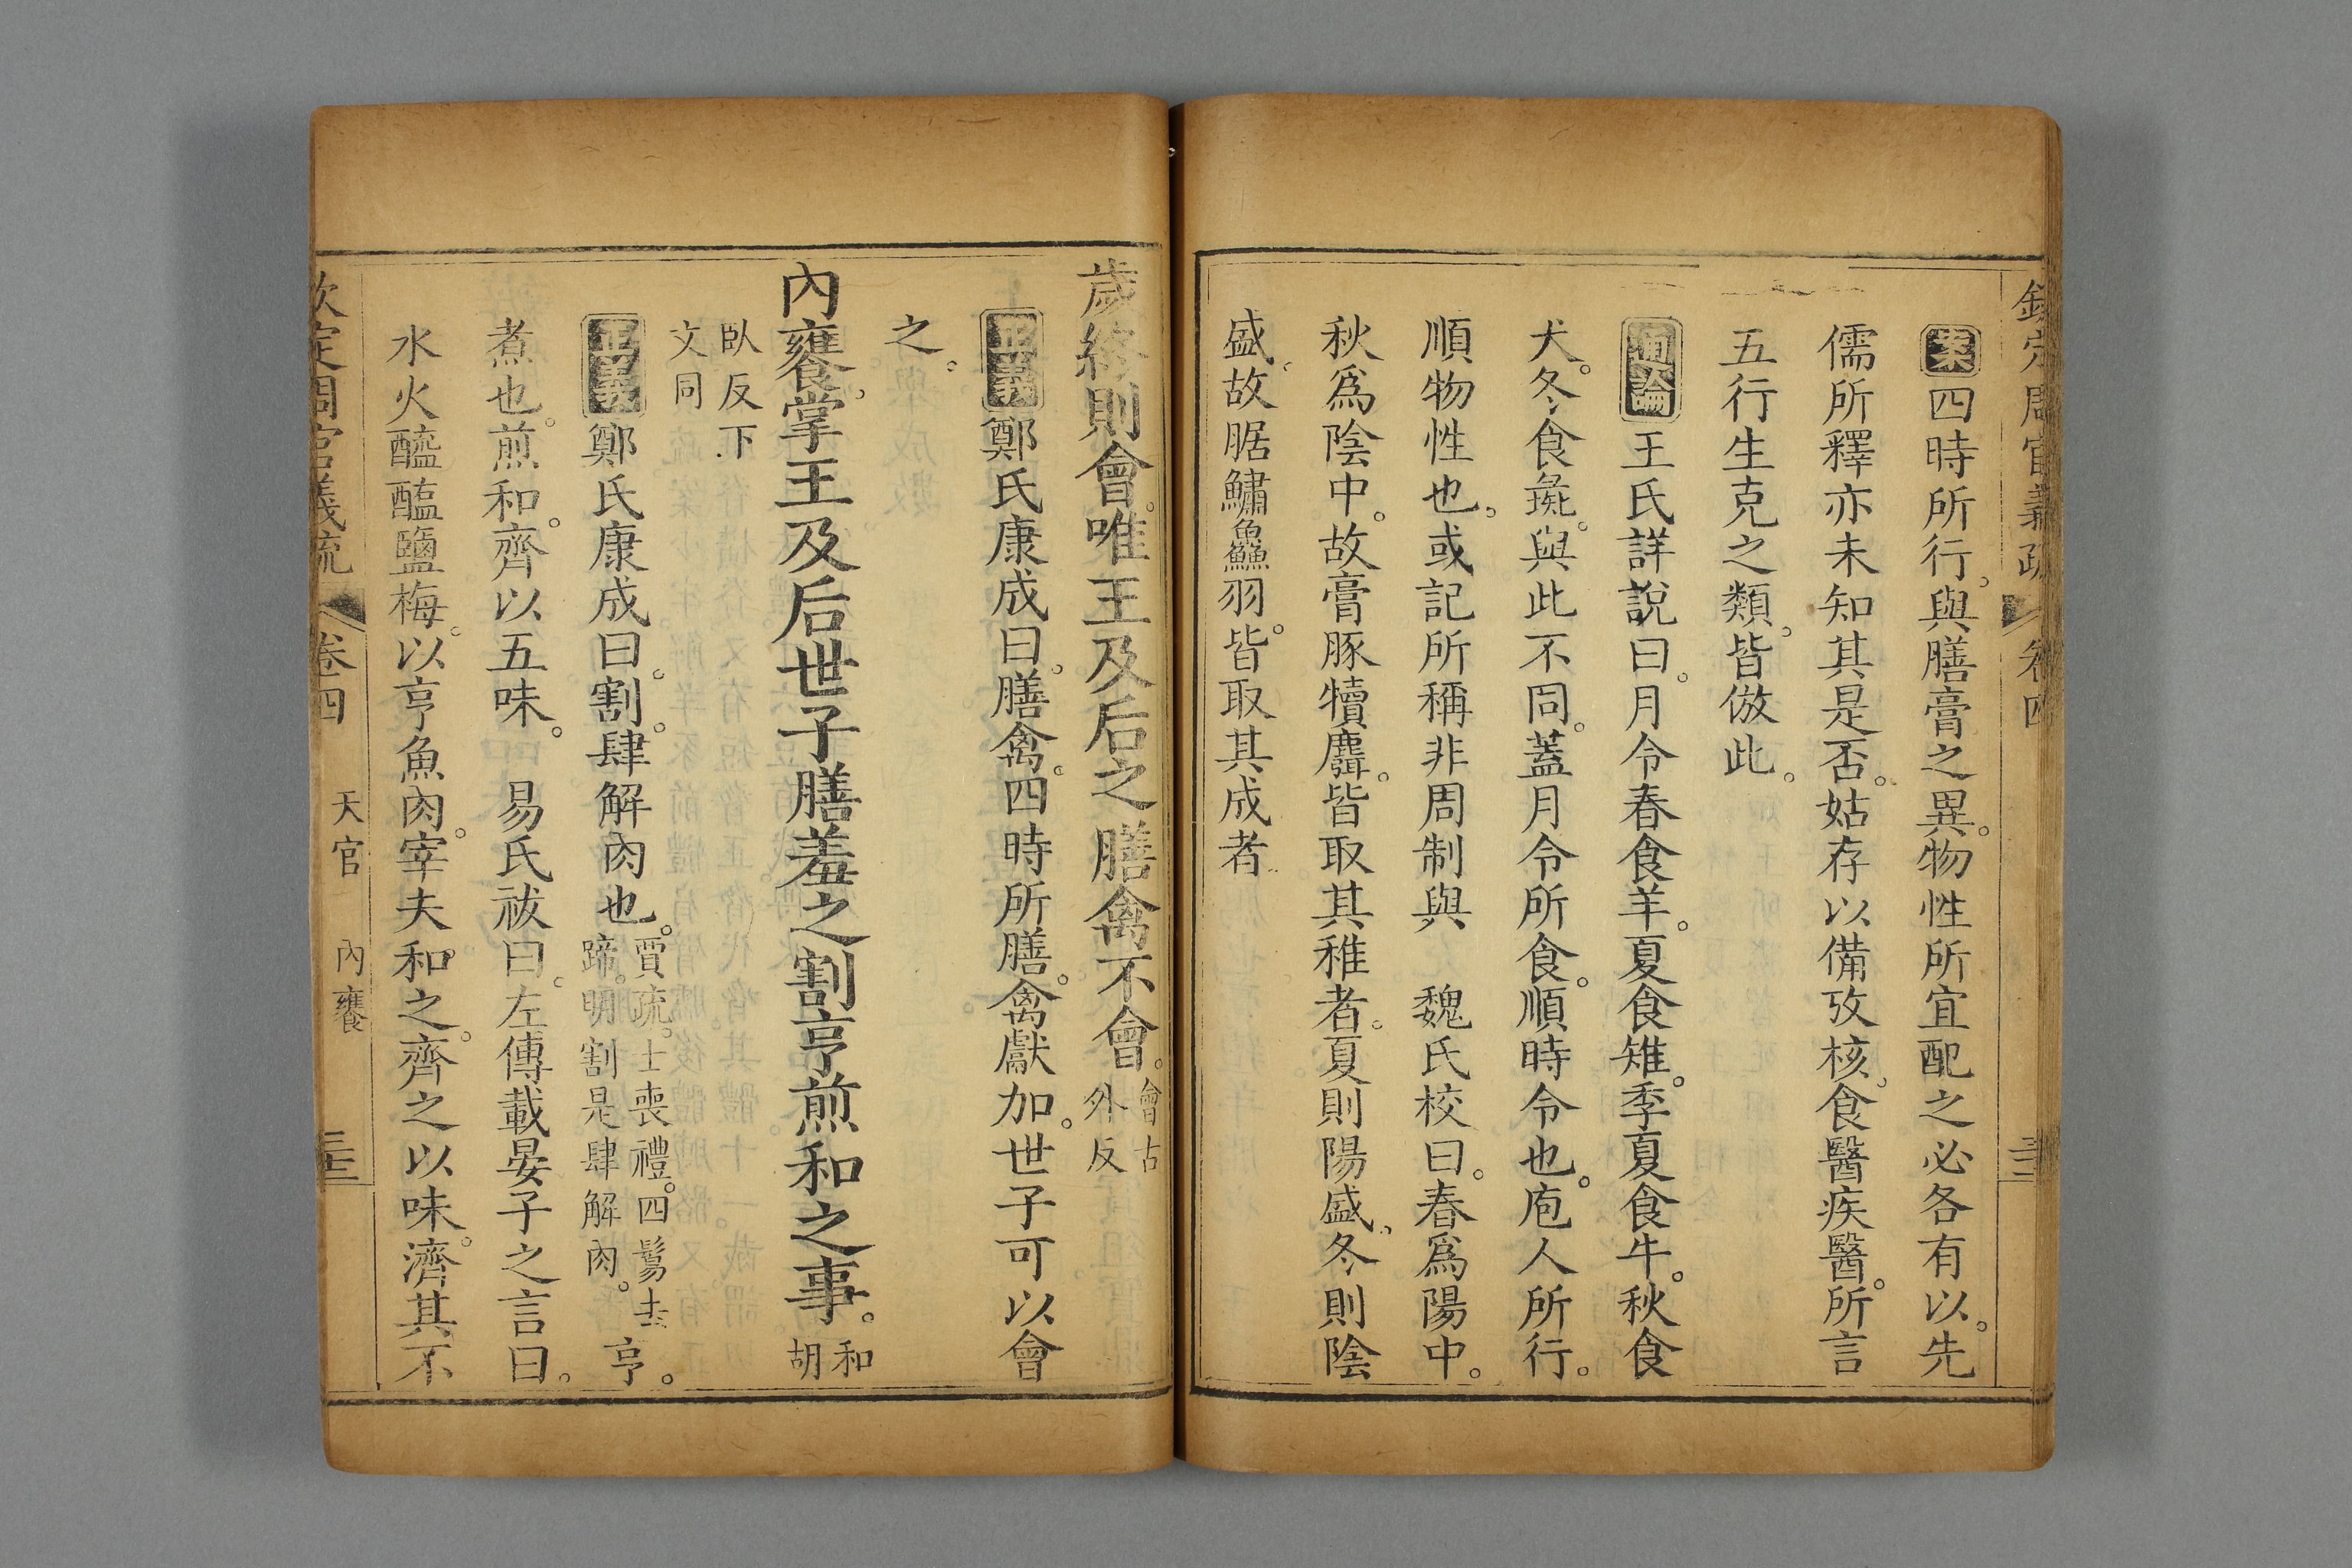 欽定周官義疏 卷四
案四時所行與膳膏之異。物性所宜配之必各有以。先
儒所釋亦未知其是否。姑存以備攷核。食醫疾醫。所言
五行生克之類。皆倣此。
通論王氏詳說曰。月令春食羊。夏食雉。季夏食牛。秋食
犬。冬食彘。與此不同。蓋月令所食。順時令也。庖人所行。
順物性也。或記所稱非周制與　魏氏校曰。春為陽中。
秋為陰中。故膏豚犢麛。皆取其稚者。夏則陽盛。冬則陰
盛。故腒鱐鱻羽。皆取其成者
歲終則會。唯王及后之膳禽不會。會古外反
正義鄭氏康成曰。膳禽。四時所膳。禽獻加。世子可以會
之。
內饔。掌王及后世子膳羞之割亨煎和之事。和胡
臥反下文同
正義鄭氏康成曰。割。肆解肉也。賈疏。士喪禮。四鬄去蹄。明割是肆解肉。亨。
煮也。煎和。齊以五味。　易氏祓曰。左傳載晏子之言曰。
水火醯醢鹽梅。以亨魚肉。宰夫和之。齊之以味。濟其不
欽定周官義疏 卷四 天官 內饔